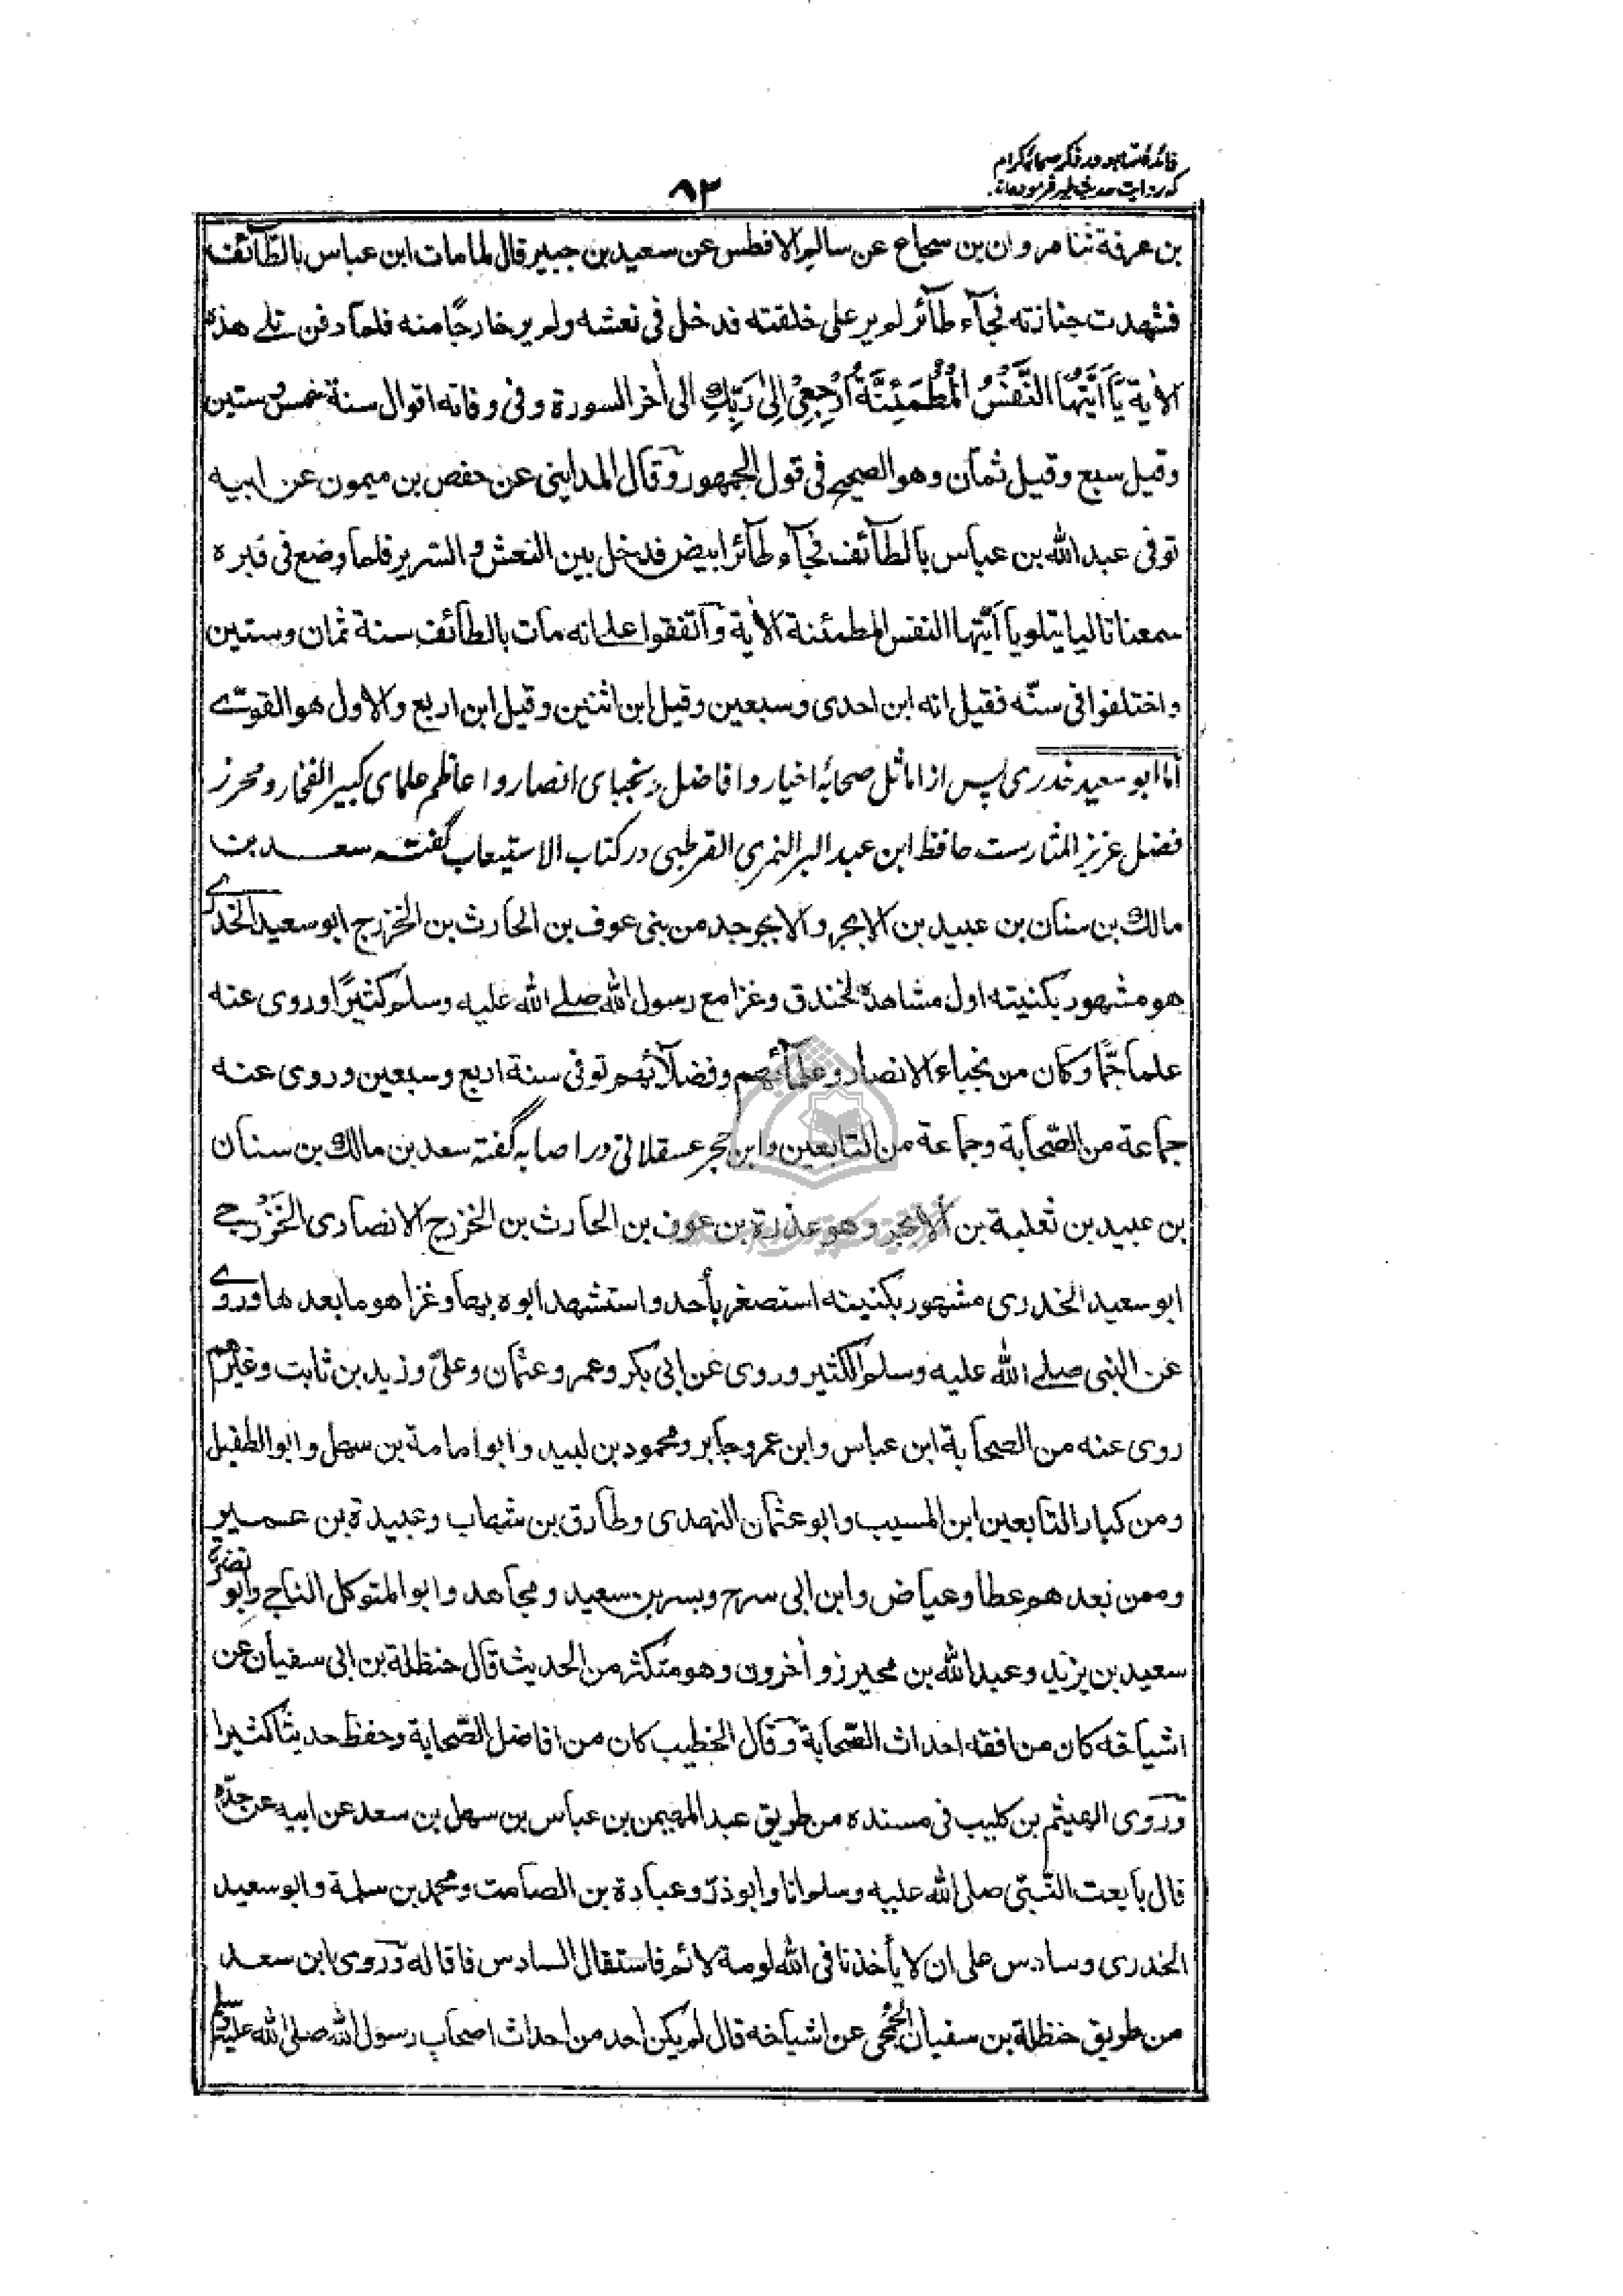 که روایت حدیث طیر فرموده‌اند
۸۲
بن عرفة ثنا مروان بن شجاع عن سالم الافطس عن سعید بن جبیر قال لما مات ابن عباس بالطّآئف
فشهدت جنازته فجآء طآئر لم یر علی خلقته فدخل فی نعشه ولم یر خارجًا منه فلما دفن تلے هذه
الاٰیة یَآ اَیَّتُهَا النَّفْسُ الْمُطْمَئِنَّةُ ارْجِعِیْ اِلیٰ رَبِّكِ الی اٰخر السورة و فی وفاته اقوال سنة خمس وستین
وقیل سبع وقیل ثمان وهو الصحیح فی قول الجمهور وقال المداینی عن حفص بن میمون عن ابیه
توفی عبد الله بن عباس بالطآئف فجآء طآئر ابیض فدخل بین النعش والسریر فلما وضع فی قبره
سمعنا تالیا یتلو یآ اَیّتها النفس المطمئنة الاٰیة واتفقوا علے انه مات بالطآئف سنة ثمان وستین
واختلفوا فی سنّه فقیل انه ابن احدی وسبعین وقیل ابن اثنین وقیل ابن اربع والاول هو القوےّ
اما ابو سعید خدری پس از اماثل صحابهٔ اخیار و افاضل نجبای انصار و اعاظم علمای کبیر الفخار و محرز
فضل عزیز المثارست حافظ ابن عبد البر النمری القرطبی در کتاب الاستیعاب گفته سعد بن
مالك بن سنان بن عبید بن الابجر والابجر جد من بنی عوف بن الحارث بن الخزرج ابو سعید الخدرے
هو مشهور بکنیته اول مشاهدة الخندق وغزا مع رسول الله صلے الله علیه وسلم کثیرًا وروی عنه
علما جمًّا وکان من نجباء الانصار وعلمآئهم وفضلآئهم توفی سنة اربع وسبعین وروی عنه
جماعة من الصّحابة وجماعة من التابعین وابن حجر عسقلانی در اصابه گفته سعد بن مالك بن سنان
بن عبید بن ثعلبة بن الابجر وهو عذرة بن عوف بن الحارث بن الخزرج الانصاری الخَزْرجے
ابو سعید الخدری مشهور بکنیته استصغر بأحد واستشهد ابوه بها وغزا هو ما بعدها وروے
عن النبی صلے الله علیه وسلم الکثیر وروی عن ابی بکر وعمر وعثمان وعلیّ وزید بن ثابت وغیرهم
روی عنه من الصحابة ابن عباس وابن عمر وجابر ومحمود بن لبید وابو امامة بن سهل وابو الطفیل
ومن کبار التابعین ابن المسیب وابو عثمان النهدی وطارق بن شهاب وعبیدة بن عمیر
وممن بعدهم عطا وعیاض وابن ابی سرح وبسر بن سعید ومجاهد وابو المتوکل الناجے وابو نضرة
سعید بن یزید وعبد الله بن محیرز واٰخرون وهو متکثر من الحدیث قال حنظلة بن ابی سفیان عن
اشیاخه کان من افقه احداث الصّحابة وقال الخطیب کان من افاضل الصّحابة وحفظ حدیثا کثیرا
وروی الهیثم بن کلیب فی مسنده من طریق عبد المهیمن بن عباس بن سهل بن سعد عن ابیه عن جدّه
قال بایعت النّبیّ صلی الله علیه وسلم انا وابو ذرّ وعبادة بن الصامت ومحمد بن سلمة وابو سعید
الخدری وسادس علی ان لا یأخذنا فی الله لومة لائم فاستقال السادس فاقاله وروی ابن سعد
من طریق حنظلة بن سفیان الجُمحی عن اشیاخه قال لم یکن احد من احداث اصحاب رسول الله صلی الله علیه وسلم